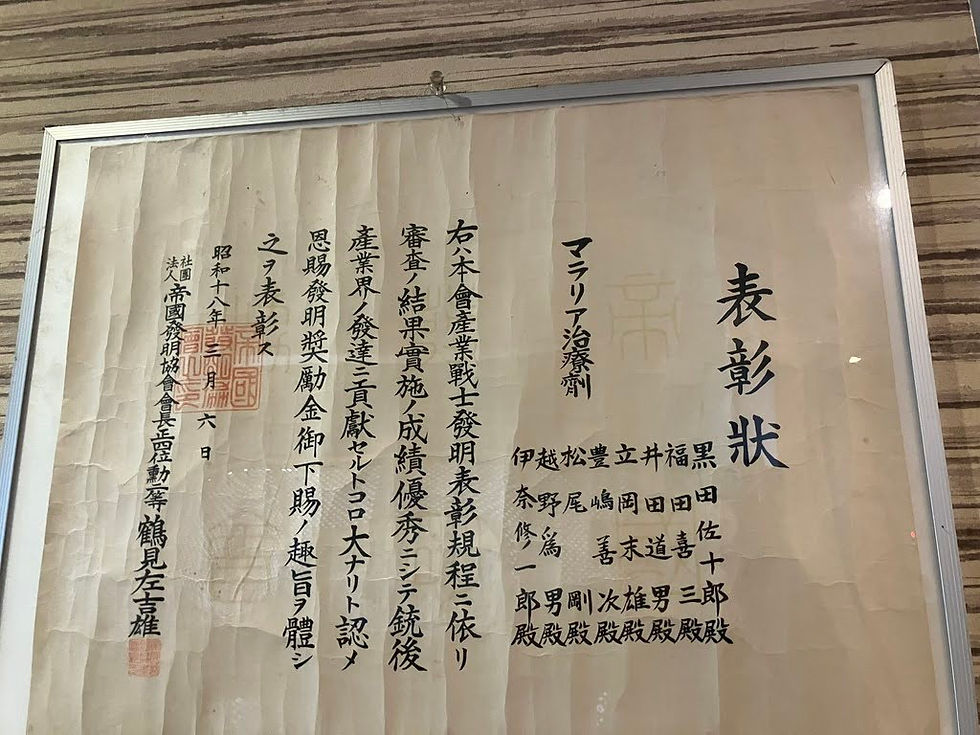 表彰狀
マラリア治療劑
黒田佐十郎殿
福田喜三殿
井田道男殿
立岡末雄殿
豊嶋善次殿
松尾剛殿
越野爲男殿
伊奈修一郎殿
右ハ本會產業戰士發明表彰規程ニ依リ
審査ノ結果實施ノ成績優秀ニシテ銃後
產業界ノ發達ニ貢獻セルトコロ大ナリト認メ
恩賜發明奬勵金御下賜ノ趣旨ヲ體シ
之ヲ表彰ス
昭和十八年三月六日
社團法人帝國發明協會會長 鶴見左吉雄